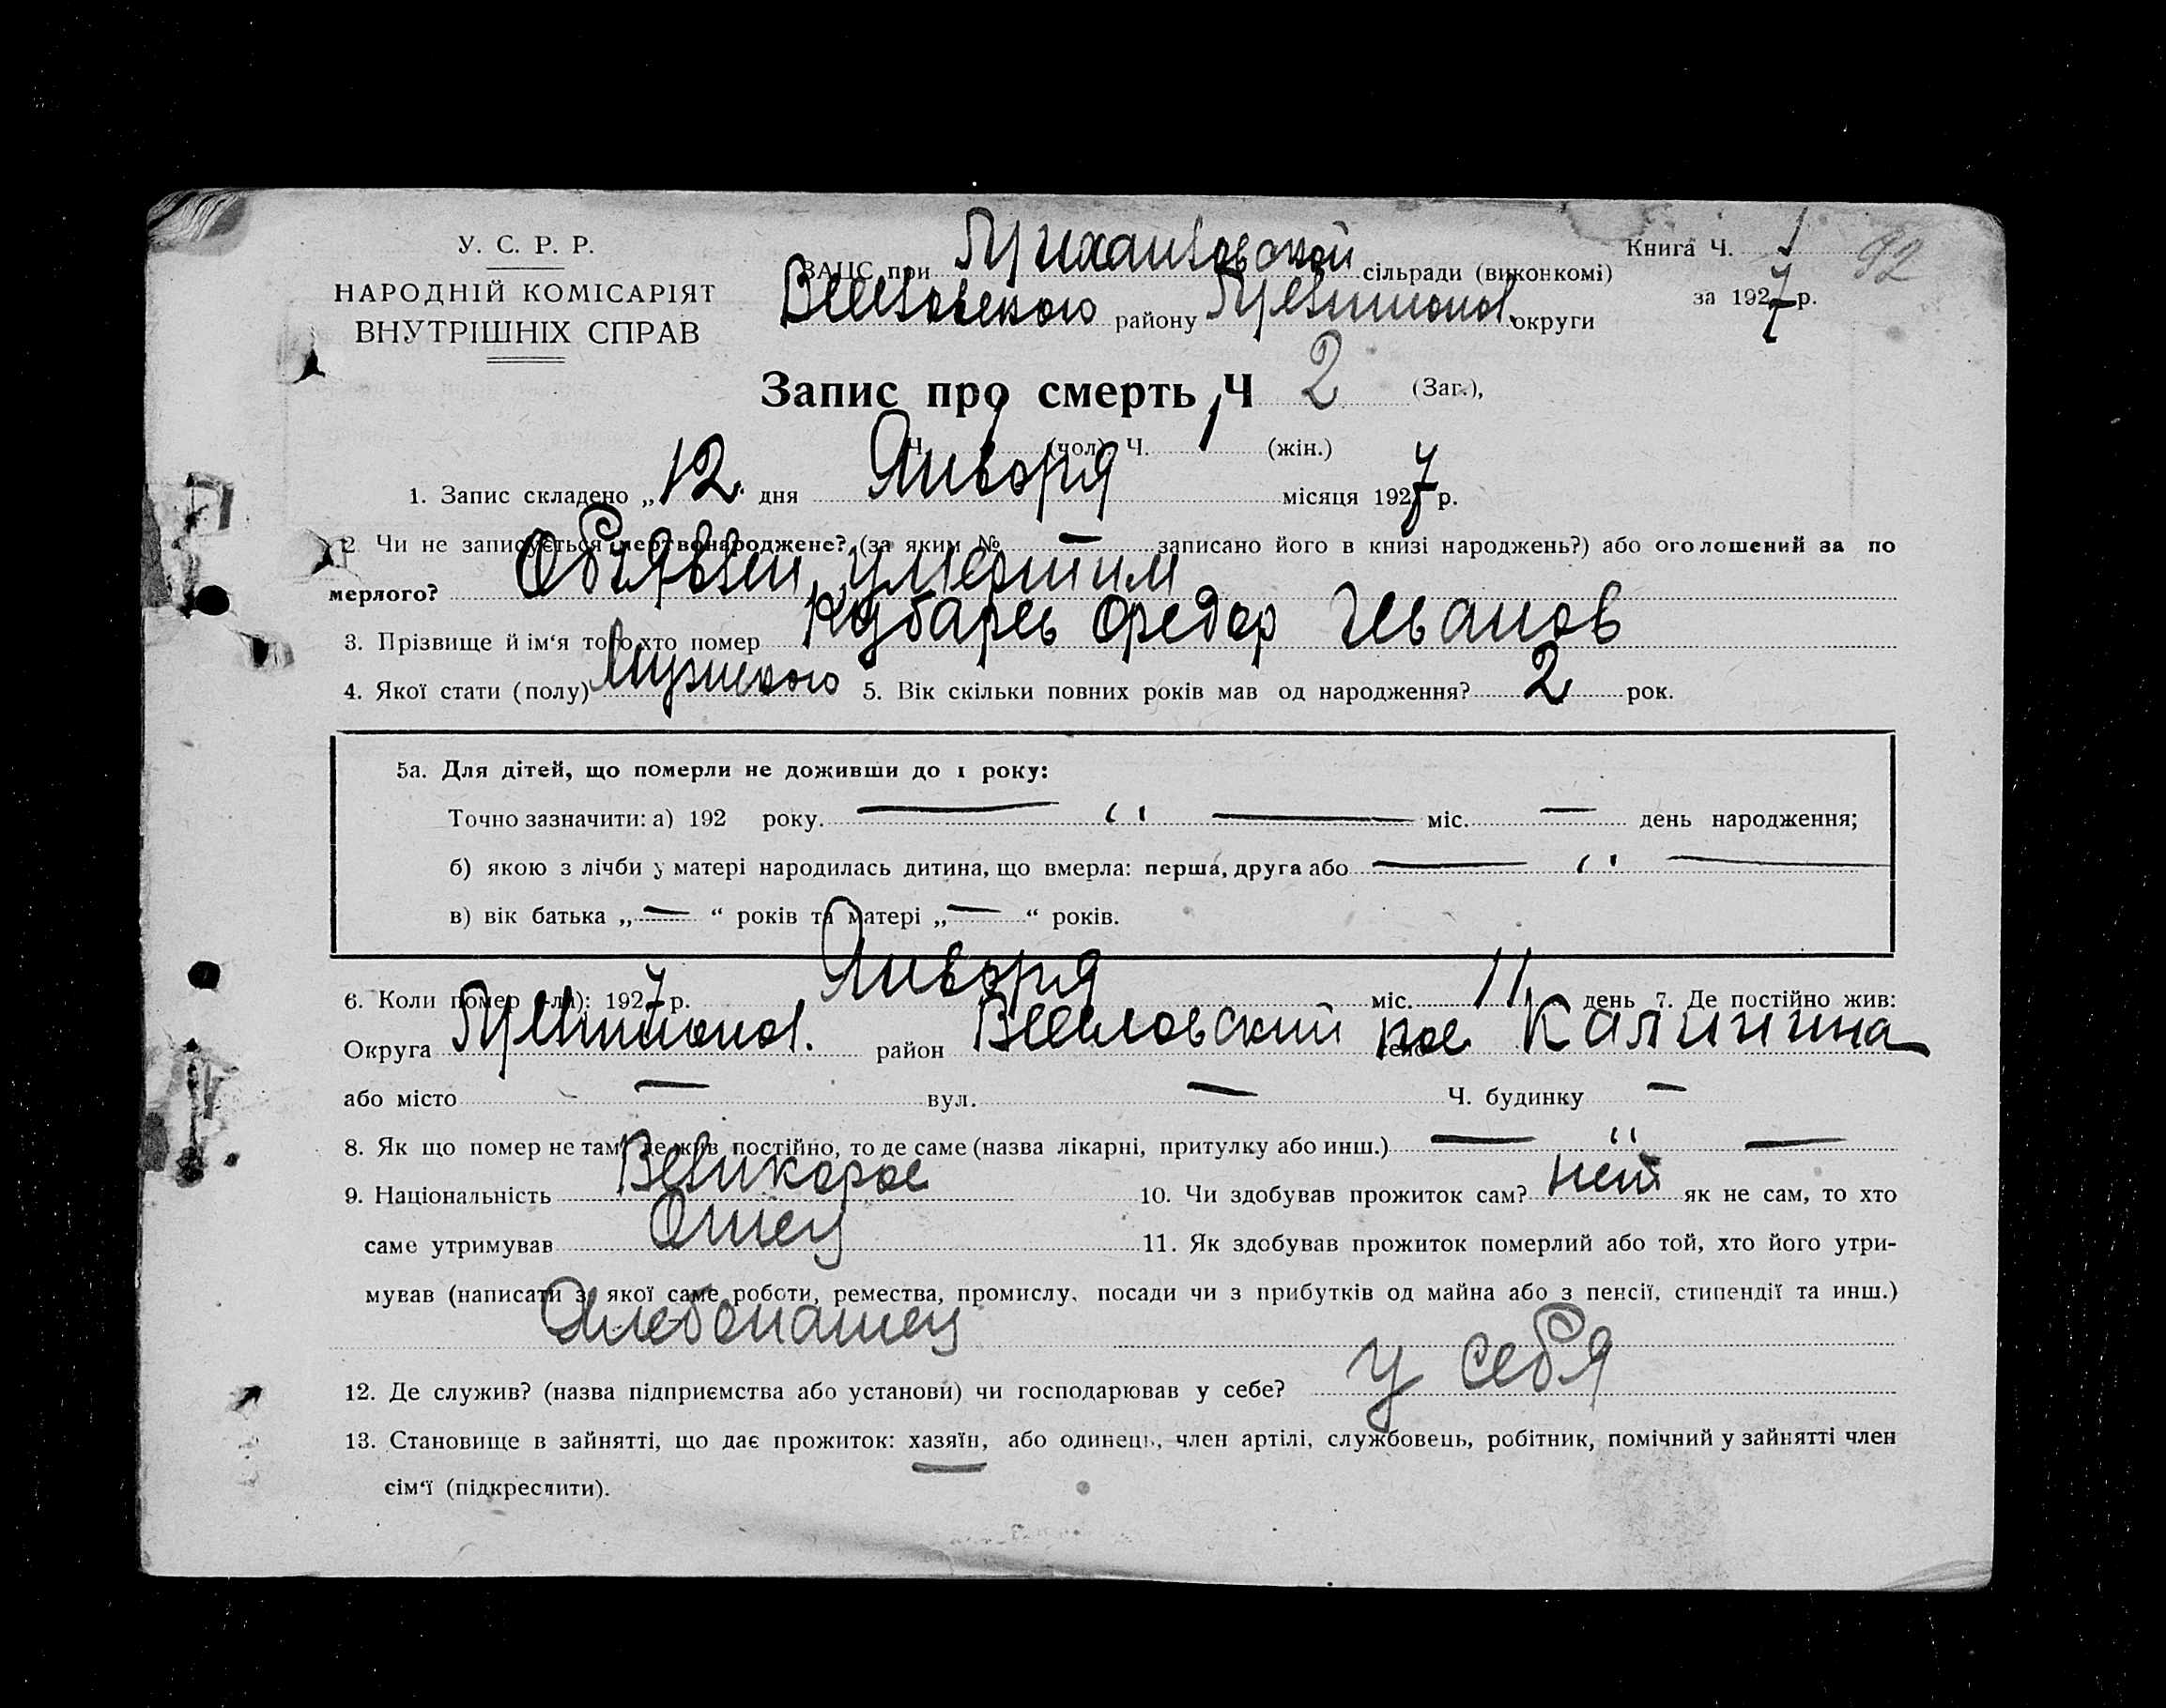 У. С. Р. Р.
НАРОДНІЙ КОМІСАРІЯТ
ВНУТРІШНІХ СПРАВ
ЗАЦС при сільради (виконкомі)
району округи
Книга Ч. 1 92
за 1927 р.
Запис про смерть Ч 2 (Заг.),
Ч. 1 (чол) Ч. 1 (жін.)
1. Запис складено „12" дня Января місяця 1927 р.
2. Чи не записується мертвонароджене? (за яким № записано його в книзі народжень?) або оголошений за по
мерлого? Объявлен умершим
3. Прізвище й ім'я того хто помер Кубарев Федор Иванов
4. Якої стати (полу) Мужского 5. Вік скільки повних років мав од народження? 2 рок.
5а. Для дітей, що померли не доживши до 1 року:
Точно зазначити: а) 192 року. — " — міс. — день народження;
б) якою з лічби у матері народилась дитина, що вмерла: перша, друга або — " —
в) вік батька „ — “ років та матері „ — “ років.
6. Коли помер (-ла): 1927 р. Января міс. 11 день 7. Де постійно жив:
Округа район Веселовский село пос Калинина
або місто — вул. — Ч. будинку —
8. Як що помер не там, де жив постійно, то де саме (назва лікарні, притулку або инш.) — " —
9. Національність Великорос 10. Чи здобував прожиток сам? нет як не сам, то хто
саме утримував Отец 11. Як здобував прожиток померлий або той, хто його утри-
мував (написати з якої саме роботи, ремества, промислу, посади чи з прибутків од майна або з пенсії, стипендії та инш.)
Хлебопашец
12. Де служив? (назва підприємства або установи) чи господарював у себе? у себя
13. Становище в зайнятті, що дає прожиток: хазяїн, або одинець, член артілі, службовець, робітник, помічний у зайнятті член
сім'ї (підкреслити).